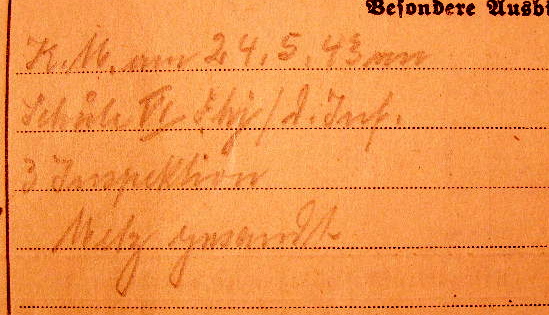 Besondere Ausbi
K.M. am 24.5.43 an
Schule VI Fhj/d.Inf.
3 Inspektion
Metz gesandt